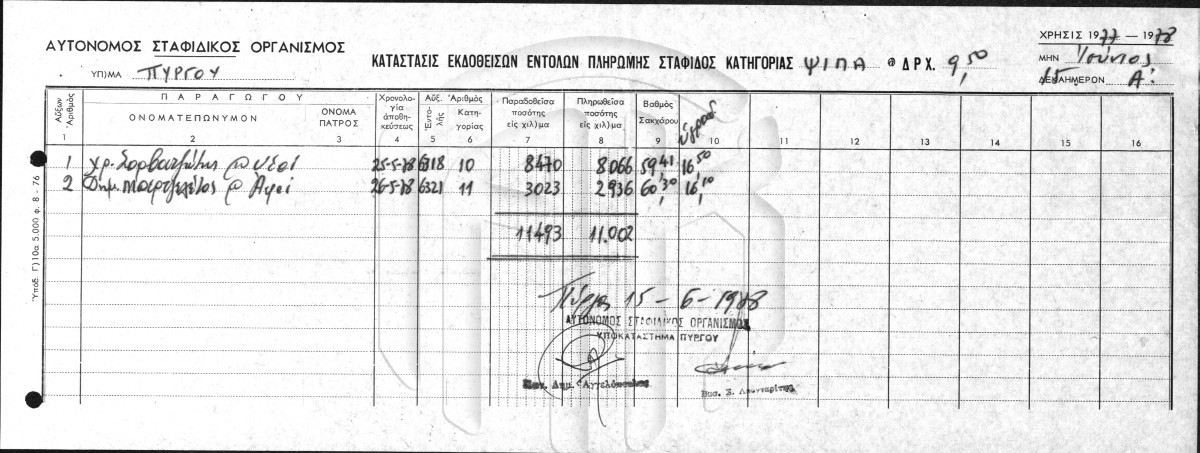 ΑΥΤΟΝΟΜΟΣ ΣΤΑΦΙΔΙΚΟΣ ΟΡΓΑΝΙΣΜΟΣ
ΧΡΗΣΙΣ 1977 — 1978
ΥΠ)ΜΑ ΠΥΡΓΟΥ
ΚΑΤΑΣΤΑΣΙΣ ΕΚΔΟΘΕΙΣΩΝ ΕΝΤΟΛΩΝ ΠΛΗΡΩΜΗΣ ΣΤΑΦΙΔΟΣ ΚΑΤΗΓΟΡΙΑΣ ΨΙΠΑ @ ΔΡΧ. 9,50
ΜΗΝ Ιούνιος
ΔΕΚΑΗΜΕΡΟΝ Α!
Αὔξων Ἀριθμός
ΠΑΡΑΓΩΓΟΥ
ΟΝΟΜΑΤΕΠΩΝΥΜΟΝ
ΟΝΟΜΑ ΠΑΤΡΟΣ
Χρονολογία ἀποθηκεύσεως
Αὔξ. Ἀριθμὸς
Ἐντολῆς
Κατηγορίας
Παραδοθεῖσα ποσότης εἰς χιλ)μα
Πληρωθεῖσα ποσότης εἰς χιλ)μα
Βαθμὸς Σακχάρου
1 2 3 4 5 6 7 8 9 10 11 12 13 14 15 16
1 Χρ. @ 25-5-78 6318 10 8470 8066 59,41 16,50
2 Δημ. @ 26-5-78 6321 11 3023 2936 60,30 16,10
11493 11.002
Πύργος 15-6-1978
ΑΥΤΟΝΟΜΟΣ ΣΤΑΦΙΔΙΚΟΣ ΟΡΓΑΝΙΣΜΟΣ
ΥΠΟΚΑΤΑΣΤΗΜΑ ΠΥΡΓΟΥ
Δημ. Ἀγγελόπουλος
Ὑπόδ. Γ)10α 5.000 φ. 8 - 76